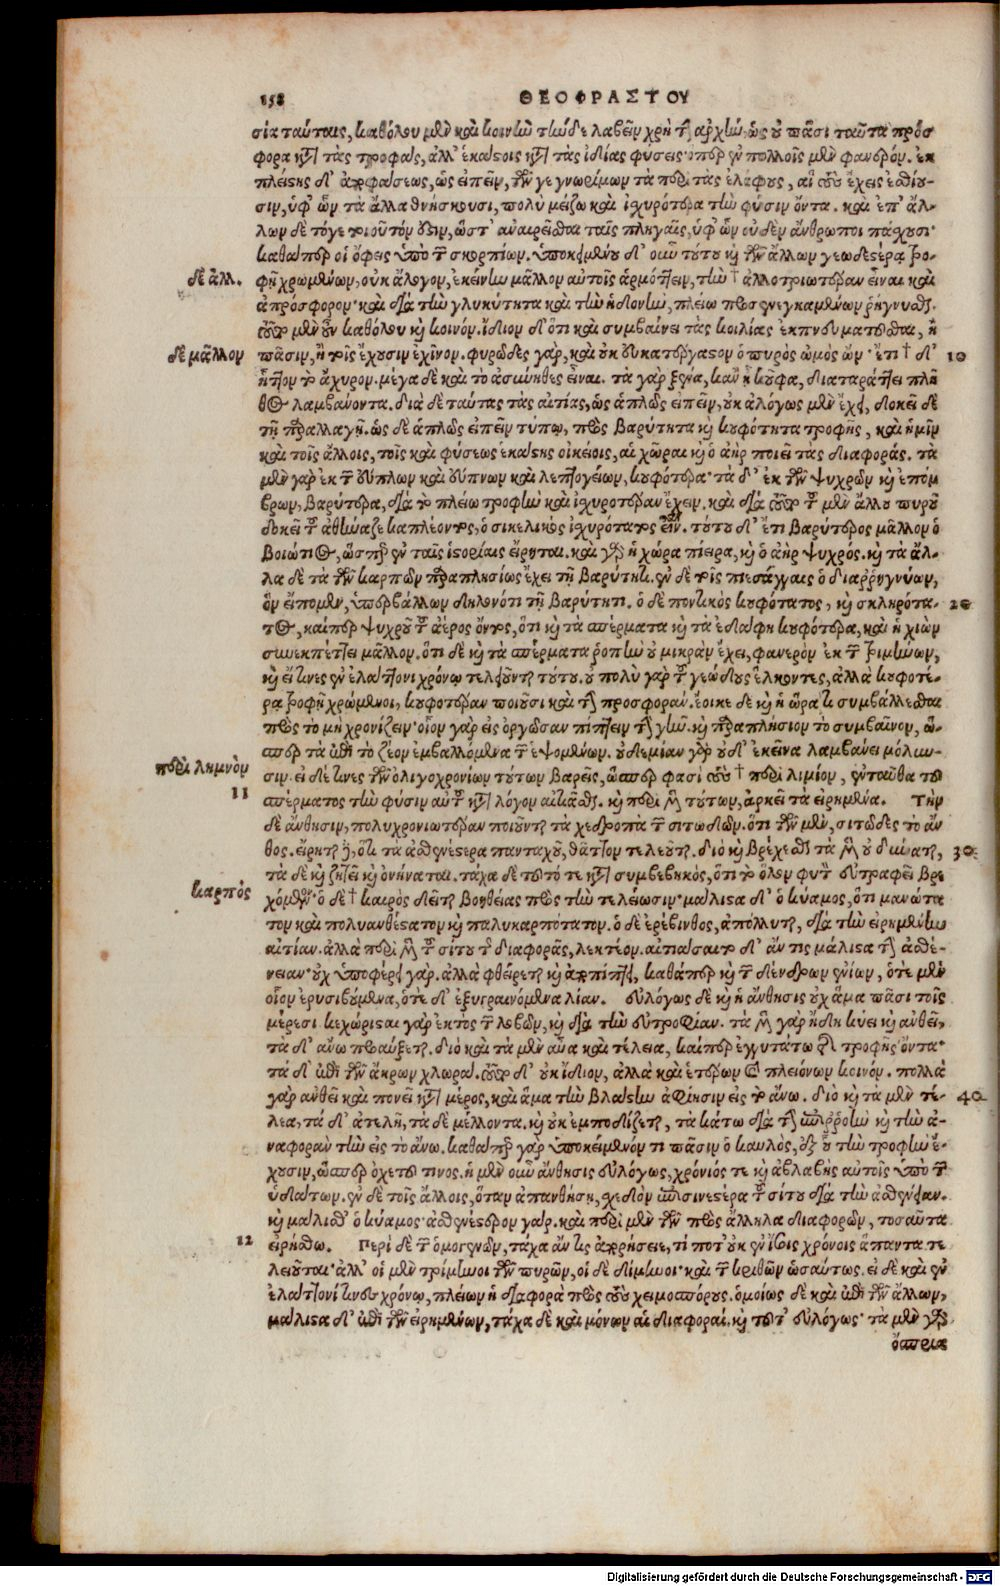 158 ΘΕΟΦΡΑΣΤΟΥ
σία ταύταις, καθόλου μὲν καὶ κοινὴν τήνδε λαβεῖν χρὴ τὴν ἀρχὴν, ὡς οὐ πᾶσι ταῦτα πρόσ
φορα κατὰ τὰς τροφὰς, ἀλλ' ἑκάστοις κατὰ τὰς ἰδίας φύσεις· ὅπερ ἐν πολλοῖς μὲν φανερόν. ἐκ
πλείστης δ' ἀποστάσεως, ὡς εἰπεῖν, τῶν γε γνωρίμων τὰ περὶ τὰς ἐλάφους, αἳ τοὺς ἔχεις ἐσθίου-
σιν, ὑφ' ὧν τὰ ἄλλα θνήσκουσι, πολὺ μείζω καὶ ἰσχυρότερα τὴν φύσιν ὄντα. καὶ ἐπ' ἄλ-
λων δὲ τό γε τοιοῦτόν ἐστιν, ὥστ' ἀναιρεῖσθαι ταῖς πληγαῖς, ὑφ' ὧν οὐδὲν ἄνθρωποι πάσχουσι·
καθάπερ οἱ ὄφεις ὑπὸ τῶν σκορπίων. ὑποκειμένου δ' οὖν τούτου καὶ τῶν ἄλλων γεωδεστέρᾳ τρο-
δὲ ἀλλ. φῇ χρωμένων, οὐκ ἄλογον, ἐκείνην μᾶλλον αὐτοῖς ἁρμόττειν, τὴν † ἀλλοτριωτέραν εἶναι καὶ
ἀπρόσφορον· καὶ διὰ τὴν γλυκύτητα καὶ τὴν ἡδονὴν, πλείω πως ἐνεγκαμένων ῥήγνυσθαι.
τοῦτο μὲν οὖν καθόλου καὶ κοινόν. ἴδιον δ' ὅτι καὶ συμβαίνει τὰς κοιλίας ἐκπνευματοῦσθαι, ἢ
δὲ μᾶλλον πᾶσιν, ἢ τοῖς ἔχουσιν ἐχῖνον. φυρῶδες γὰρ, καὶ οὐκ εὐκατέργαστον ὁ πυρὸς ὠμὸς ὤν· ἔτι † δ' 10
ἧττον τὸ ἄχυρον. μέγα δὲ καὶ τὸ ἀσύνηθες εἶναι. τὰ γὰρ ξένα, κἂν ᾖ κοῦφα, διαταράττει πλῆ
θος λαμβάνοντα. διὰ δὲ ταύτας τὰς αἰτίας, ὡς ἁπλῶς εἰπεῖν, οὐκ ἀλόγως μὲν ἔχει, δοκεῖ δὲ
τῇ παραλλαγῇ. ὡς δὲ ἁπλῶς εἰπεῖν τύπῳ, πρὸς βαρύτητα καὶ κουφότητα τροφῆς, καὶ ἡμῖν
καὶ τοῖς ἄλλοις, τοῖς καὶ φύσεως ἑκάστης οἰκείοις, αἱ χῶραι καὶ ὁ ἀὴρ ποιεῖ τὰς διαφοράς. τὰ
μὲν γὰρ ἐκ τῶν εὐπλων καὶ εὐπνων καὶ λεπτογείων, κουφότερα· τὰ δ' ἐκ τῶν ψυχρῶν καὶ ἐπόμ
βρων, βαρύτερα, διὰ τὸ πλείω τροφὴν καὶ ἰσχυροτέραν ἔχειν. καὶ διὰ τοῦτο τοῦ μὲν ἄλλου πυροῦ
δοκεῖ τοῦ ἀθήναζε καπλέοντος, ὁ σικελικὸς ἰσχυρότατος εἶναι. τούτου δ' ἔτι βαρύτερος μᾶλλον ὁ
βοιώτιος, ὥσπερ ἐν ταῖς ἱστορίαις εἴρηται. καὶ γὰρ ἡ χώρα πίειρα, καὶ ὁ ἀὴρ ψυχρός. καὶ τὰ ἄλ-
λα δὲ τὰ τῶν καρπῶν παραπλησίως ἔχει τῇ βαρύτητι. ἐν δὲ τοῖς πισσάγγαις ὁ διαῤῥηγνύων,
ὃν εἴπομεν, ὑπερβάλλων δηλονότι τῇ βαρύτητι. ὁ δὲ ποντικὸς κουφότατος, καὶ σκληρότα- 20
τος, καίπερ ψυχροῦ τοῦ ἀέρος ὄντος, ὅτι καὶ τὰ σπέρματα καὶ τὰ ἐδάφη κουφότερα, καὶ ἡ χιὼν
συνεκπέττει μᾶλλον. ὅτι δὲ καὶ τὰ σπέρματα ῥοπὴν οὐ μικρὰν ἔχει, φανερὸν ἐκ τῶν τριμήνων,
καὶ εἴ τινες ἐν ἐλάττονι χρόνῳ τελειοῦνται τούτου. οὐ πολὺ γὰρ τοῦ γεώδους ἕλκοντες, ἀλλὰ κουφοτέ-
ρᾳ τροφῇ χρώμενοι, κουφοτέραν ποιοῦσι καὶ τὴν προσφοράν. ἔοικε δὲ καὶ ἡ ὥρα τι συμβάλλεσθαι
πρὸς τὸ μὴ χρονίζειν· οἷον γὰρ εἰς ὀργῶσαν πίπτειν τὴν γῆν. καὶ παραπλήσιον τὸ συμβαῖνον, ὥ-
σπερ τὰ ἐπὶ τὸ ζέον ἐμβαλλόμενα τῶν ἑψομένων. οὐδεμίαν γὰρ οὐδ' ἐκεῖνα λαμβάνει μόλυν-
περὶ λημνὸν σιν. εἰ δέ τινες τῶν ὀλιγοχρονίων τούτων βαρεῖς, ὥσπερ φασὶ τοὺς † περὶ λιμίον, ἐνταῦθα τοῦ
11 σπέρματος τὴν φύσιν αὐτοῦ κατὰ λόγον αἰτιᾶσθαι. καὶ περὶ μὲν τούτων, ἀρκεῖ τὰ εἰρημένα. Τὴν
δὲ ἄνθησιν, πολυχρονιωτέραν ποιοῦνται τὰ χεδροπὰ τῶν σιτωδῶν. ὅτι τῶν μὲν, σιτῶδες τὸ ἄν
θος. εἴρηται δὲ, ὅτι τὰ ἀσθενέστερα πανταχοῦ, θᾶττον τελειοῦται. διὸ καὶ βρέχεσθαι τὰ μὲν οὐ δύναται, 30
τὰ δὲ καὶ ζητεῖ καὶ ὀνίναται. τάχα δὲ τοῦτό τε κατὰ συμβεβηκὸς, ὅτι τὸ ὅλον φυτὸν εὐτραφεῖ βρε
καρπὸς χόμενον· ὁ δὲ † καιρὸς δεῖται βοηθείας πρὸς τὴν τελέωσιν· μάλιστα δ' ὁ κύαμος, ὅτι μανώτα
τον καὶ πολυανθέστατον καὶ πολυκαρπότατον. ὁ δὲ ἐρέβινθος, ἀπόλλυται, διὰ τὴν εἰρημένην
αἰτίαν. ἀλλὰ περὶ μὲν τοῦ σίτου τῆς διαφορᾶς, λεκτέον. αἰτιάσαιτο δ' ἄν τις μάλιστα τὴν ἀσθέ-
νειαν· οὐχ ὑποφέρει γάρ. ἀλλὰ φθείρεται καὶ ἀποπίπτει, καθάπερ καὶ τῶν δένδρων ἐνίων, ὁτὲ μὲν
οἷον ἐρυσιβούμενα, ὁτὲ δ' ἐξυγραινόμενα λίαν. εὐλόγως δὲ καὶ ἡ ἄνθησις οὐχ ἅμα πᾶσι τοῖς
μέρεσι. κεχώρισται γὰρ ἐκτὸς τῶν λοβῶν, καὶ διὰ τὴν εὐτροφίαν. τὰ μὲν γὰρ ἤδη κύει καὶ ἀνθεῖ,
τὰ δ' ἄνω προαύξεται. διὸ καὶ τὰ μὲν αὖα καὶ τέλεια, καίπερ ἐγγυτάτω τῆς τροφῆς ὄντα·
τὰ δ' ἐπὶ τῶν ἄκρων χλωρά. τοῦτο δ' οὐκ ἴδιον, ἀλλὰ καὶ ἑτέρων καὶ πλειόνων κοινόν. πολλὰ
γὰρ ἀνθεῖ καὶ πονεῖ κατὰ μέρος, καὶ ἅμα τὴν βλάστην ἀφίησιν εἰς τὸ ἄνω. διὸ καὶ τὰ μὲν τέ- 40
λεα, τὰ δ' ἀτελῆ, τὰ δὲ μέλλοντα. καὶ οὐκ ἐμποδίζεται, τὰ κάτω διὰ τὴν ἐπιῤῥοὴν καὶ τὴν ἀ-
ναφορὰν τὴν εἰς τὸ ἄνω. καθάπερ γὰρ ὑποκείμενόν τι πᾶσιν ὁ καυλὸς, ἐξ οὗ τὴν τροφὴν ἔ-
χουσιν, ὥσπερ ὀχετοῦ τινος. ἡ μὲν οὖν ἄνθησις εὐλόγως, χρόνιός τε καὶ ἀβλαβὴς αὐτοῖς ὑπὸ τῶν
ὑδάτων. ἐν δὲ τοῖς ἄλλοις, ὅταν ἀπανθήσῃ, σχεδὸν ἐπισινεστέρα τοῦ σίτου διὰ τὴν ἀσθένειαν.
καὶ μάλισθ' ὁ κύαμος· ἀσθενέστερον γάρ. καὶ περὶ μὲν τῶν πρὸς ἄλληλα διαφορῶν, τοσαῦτα
12 εἰρήσθω. Περὶ δὲ τῶν ὁμογενῶν, τάχα ἄν τις ἀπορήσειε, τί ποτ' οὐκ ἐν ἴσοις χρόνοις ἅπαντα τε
λειοῦται· ἀλλ' οἱ μὲν τρίμηνοι τῶν πυρῶν, οἱ δὲ δίμηνοι· καὶ τῶν κριθῶν ὡσαύτως. εἰ δὲ καὶ ἐν
ἐλάττονι τινὲς χρόνῳ, πλείων ἡ διαφορὰ πρὸς τοὺς χειμοσπόρους. ὁμοίως δὲ καὶ ἐπὶ τῶν ἄλλων,
μάλιστα δ' ἐπὶ τῶν εἰρημένων, τάχα δὲ καὶ μόνων αἱ διαφοραί. καὶ τοῦτ' εὐλόγως· τὰ μὲν γὰρ
ὄσπρια
Digitalisierung gefördert durch die Deutsche Forschungsgemeinschaft - DFG